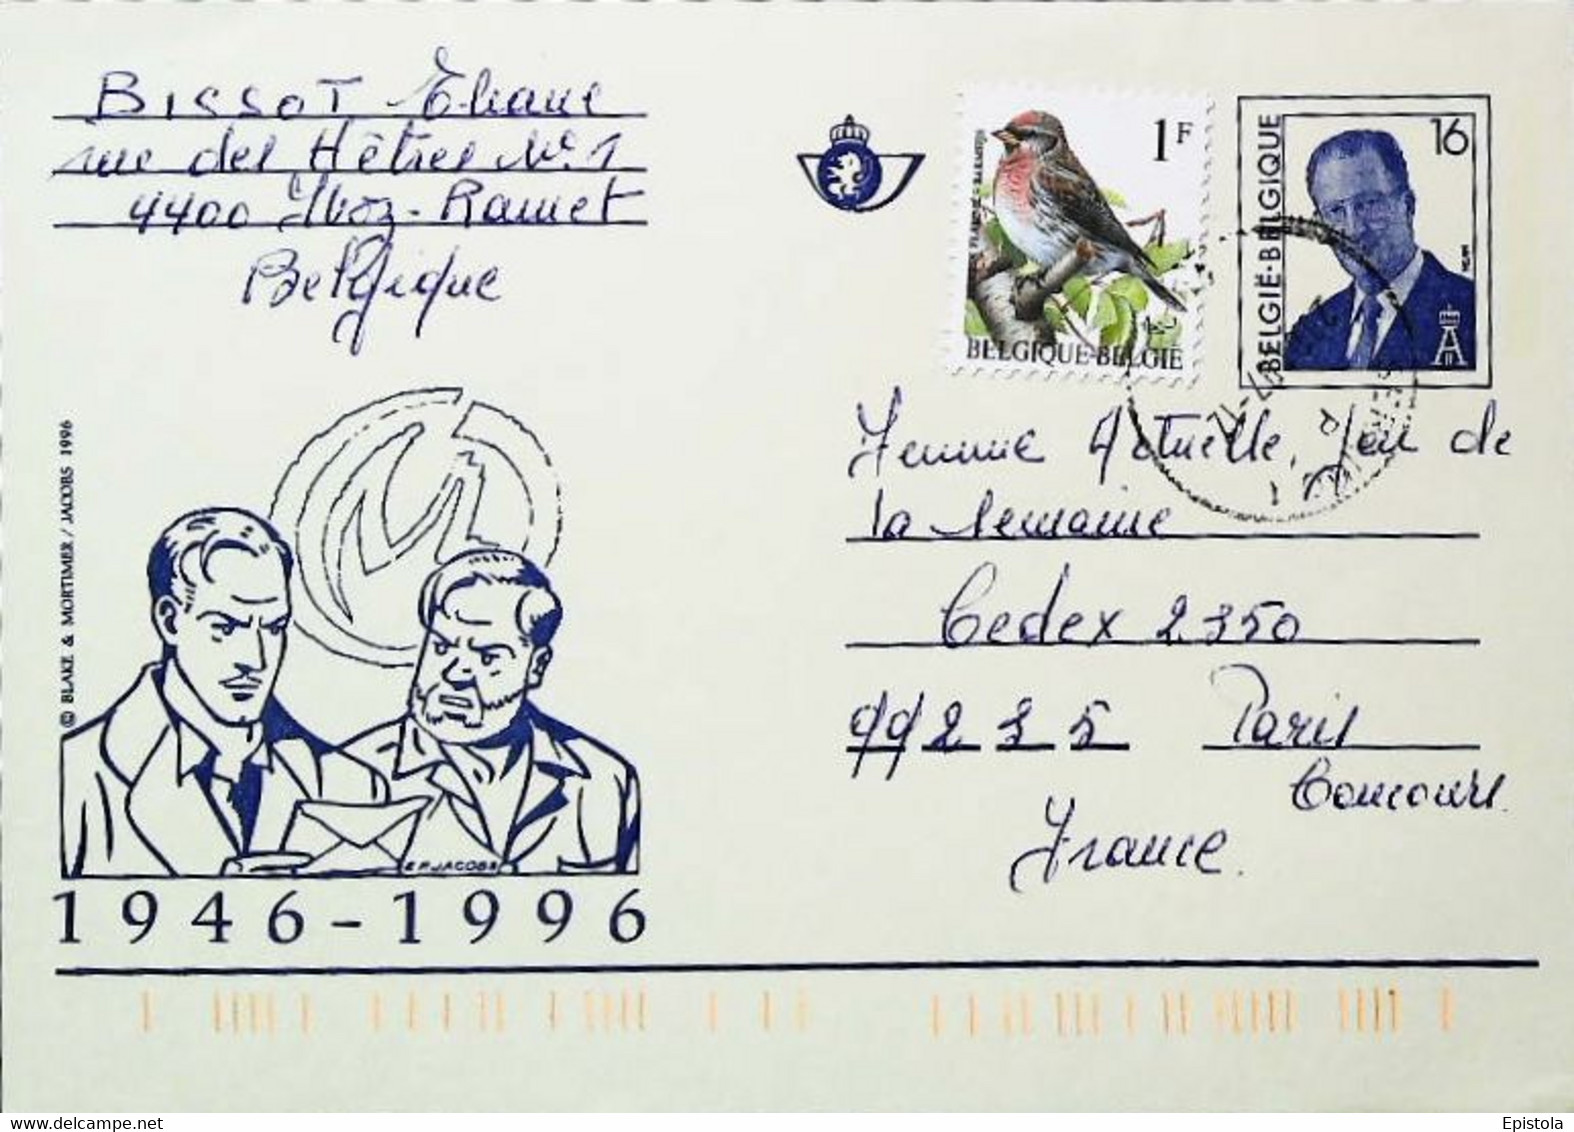 BISSOT Eliane
rue des Hêtres N° 1
4400 Ivoz-Ramet
Belgique
1F
BELGIQUE-BELGIË
16
BELGIË-BELGIQUE
Femme Actuelle, Jeu de
la Semaine
Cedex 2350
99235 Paris
Concours.
France.
© BLAKE & MORTIMER / JACOBS 1996
E.P. JACOBS
1946-1996
Epistola